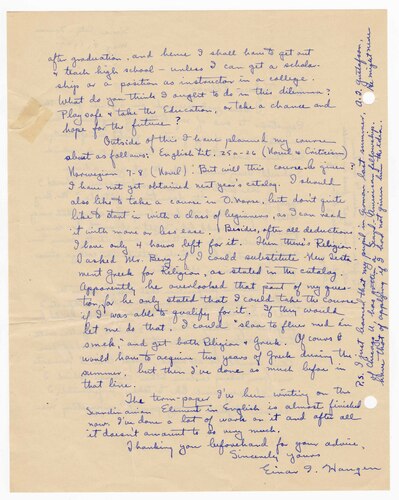 after graduation, and hence I shall have to get out
& teach high school - unless I can get a scholar-
ship or a position as instructor in a college.
What do you think I ought to do in this dilemma?
Play safe & take the Education, or take a chance and
hope for the future?
Outside of this I have planned my course
about as follows: English Lit. 25a-26 (Novel & Criticism)
Norwegian 7-8 (Novel). But will this course be given?
I have not yet obtained next year's catalog. I should
also like to take a course in O. Norse, but don't quite
like to start in with a class of beginners, as I can read
it with more or less ease. (Besides, after all deductions
I have only 4 hours left for it. Then there's Religion.
I asked Mr. Berg if I could substitute New Testa-
ment Greek for Religion, as stated in the catalog.
Apparently he overlooked that part of my ques-
tion, for he only stated that I could take the course
if I was able to qualify for it. If they would
let me do that, I could "slaa to fluer med en
smek", and get both Religion & Greek. Of course I
would have to acquire two years of Greek during the
summer, but then I've done as much before in
that line.
The term-paper I've been writing on the
Scandinavian Element in English is almost finished
now. I've done a lot of work on it and after all
it doesn't amount to so very much.
Thanking you beforehand for your advice,
Sincerely yours
Einar I. Haugen
P.S. I just learned that my pupil in Norse last summer, A.G.
of Chicago U., has gotten a Scand. American fellowship.
have that of applying if I had not given him the idea.
He might never